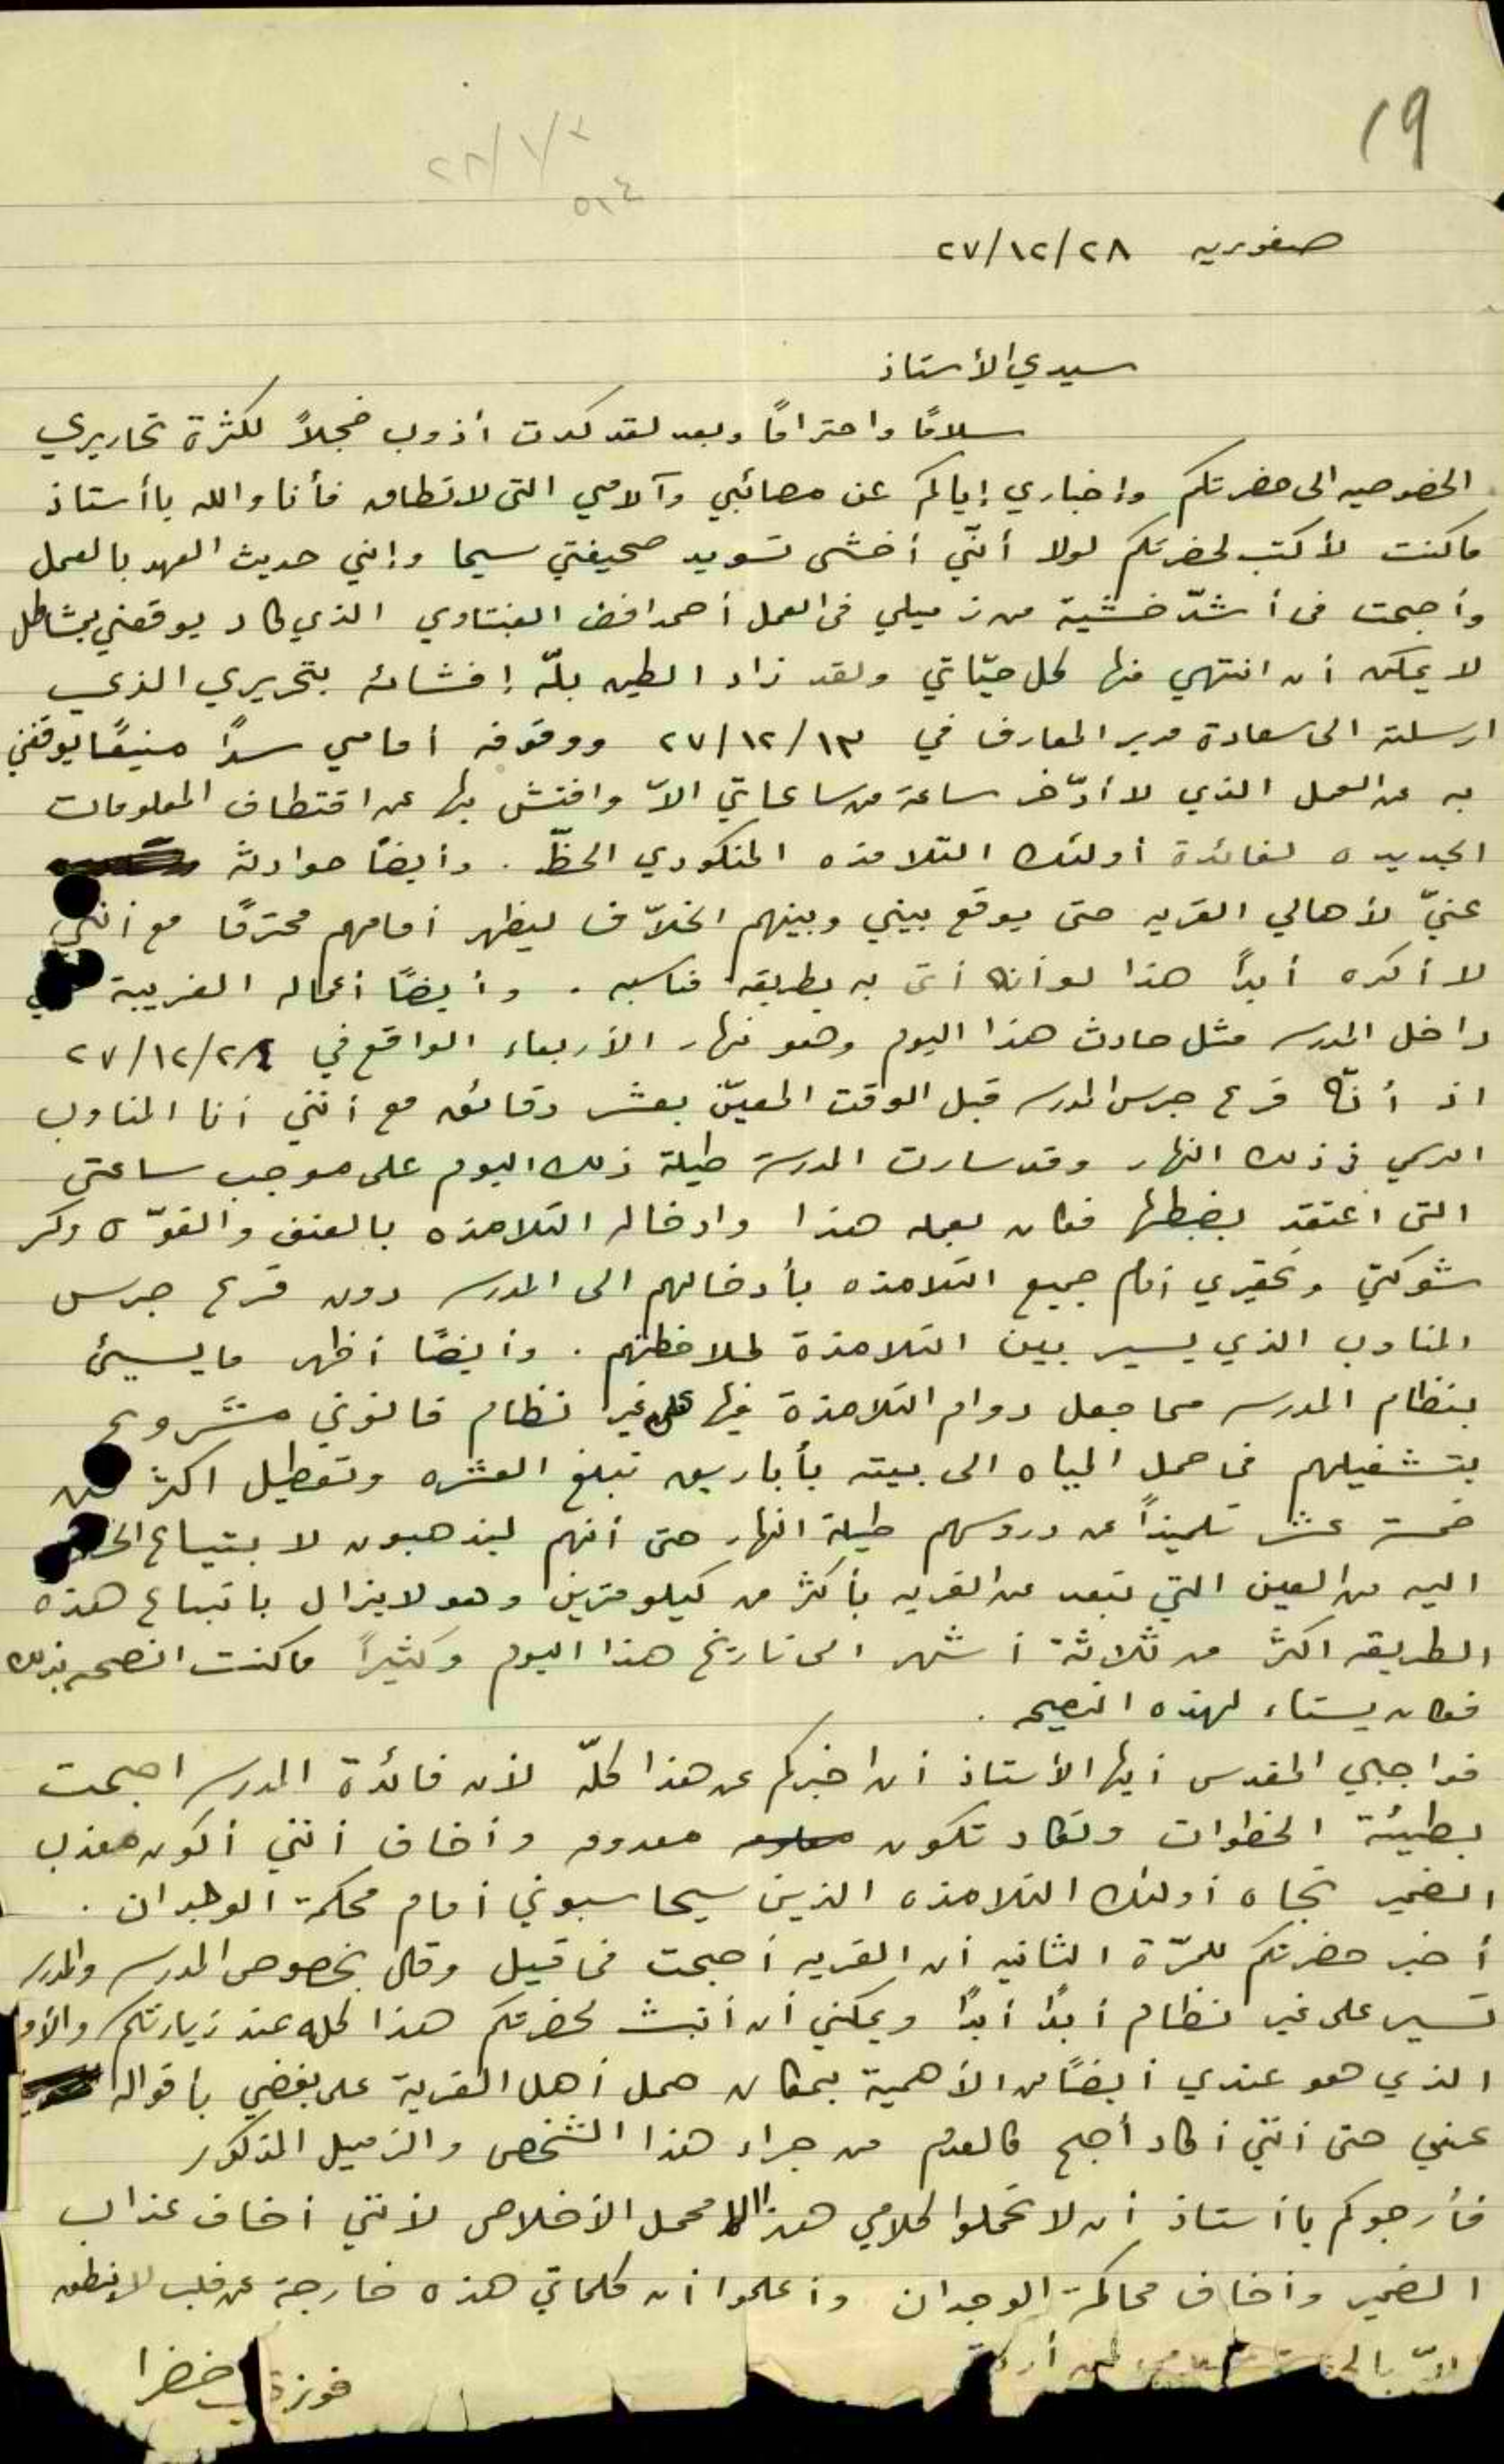 ١٩
٢٨/١/٢
٥١٤
صفوريه ٢٧/١٢/٢٨
سيدي الأستاذ
سلامًا واحترامًا وبعد لقد كدت أذوب خجلاً لكثرة تحاريري
الخصوصيه الى حضرتكم وإخباري إياكم عن مصائبي وآلامي التى لا تطاق فأنا والله يا أستاذ
ما كنت لأكتب لحضرتكم لولا أنّي أخشى تسويد صحيفتي سيما وإنني حديث العهد بالعمل
وأصبحت فى أشدّ خشية من زميلي فى العمل أحمد افندي الذي كاد يوقعني بمشاكل
لا يمكن أن انتهي منها كل حيّاتي ولقد زاد الطين بلّه إفشائه بتحريري الذي
ارسلته الى سعادة مدير المعارف في ٢٧/١٢/١٣ ووقوفه أمامي سدًا منيعًا يوقفني
به عن العمل الذي لا أدّخر ساعة من ساعاتي الاّ وافتش بها عن اقتطاف المعلومات
الجديده لفائدة أولئك التلامذه المنكودي الحظّ . وأيضًا حوادثه
عنيّ لأهالي القريه حتى يوقع بيني وبينهم الخلاّف ليظهر أمامهم محترمًا مع أنني
لا أكره أبداً هذا لو أنه أتى به بطريقه مناسبه . وأيضًا أعماله الغريبة في
داخل المدرسه مثل حادث هذا اليوم وهو نهار الأربعاء الواقع في ٢٧/١٢/٢٨
اذ أنّه قرع جرس المدرسه قبل الوقت المعيّن بعشر دقائق مع أنني أنا المناوب
الرسمي فى ذلك النهار وقد سارت المدرسة طيلة ذلك اليوم على موجب ساعتي
التى أعتقد بضبطها فكان بعمله هذا وادخاله التلامذه بالعنف والقوّه وكسر
شوكتي وتحقيري أمام جميع التلامذه بأدخالهم الى المدرسه دون قرع جرس
المناوب الذي يسير بين التلامذة لملاحظتهم . وأيضًا أظهر ما يسيئ
بنظام المدرسه مما جعل دوام التلامذة فيها على غير نظام قانوني مشروع
بتشغيلهم فى حمل المياه الى بيته بأباريق تبلغ العشره وتعطيل اكثر من
خمسة عشر تلميذاً عن دروسهم طيلة النهار حتى أنهم ليذهبون لابتياع
اليه من العين التي تبعد عن القريه بأكثر من كيلومترين وهو لا يزال باتباع هذه
الطريقه اكثر من ثلاثة أشهر الى تاريخ هذا اليوم وكثيراً ما كنت انصحه بذلك
فكان يستاء لهذه النصيحه .
فواجبي المقدس أيها الأستاذ أن اخبركم عن هذا كلّه لأن فائدة المدرسه اصبحت
بطيئة الخطوات وتكاد تكون معدومه وأخاف أنني أكون معذب
الضمير تجاه أولئك التلامذه الذين سيحاسبوني أمام محكمة الوجدان .
أخبر حضرتكم للمرّة الثانيه أن القريه أصبحت فى قيل وقال بخصوص المدرسه والمدرسه
تسير على غير نظام أبدًا أبدًا ويمكنني أن أثبت لحضرتكم هذا كله عند زيارتكم
الذي هو عندي أيضًا من الأهمية بمكان حمل أهل القرية على بغضي بأقواله
عني حتى أنني أكاد أصبح كالعدم من جراء هذا الشخص والزميل المذكور
فأرجوكم يا أستاذ أن لا تحملوا كلامي هذا الا محمل الأخلاص لأنني أخاف عذاب
الضمير وأخاف محاكمة الوجدان وأعلموا أن كلماتي هذه خارجة عن قلب لا ينطق
الاّ
فوزي خضرا